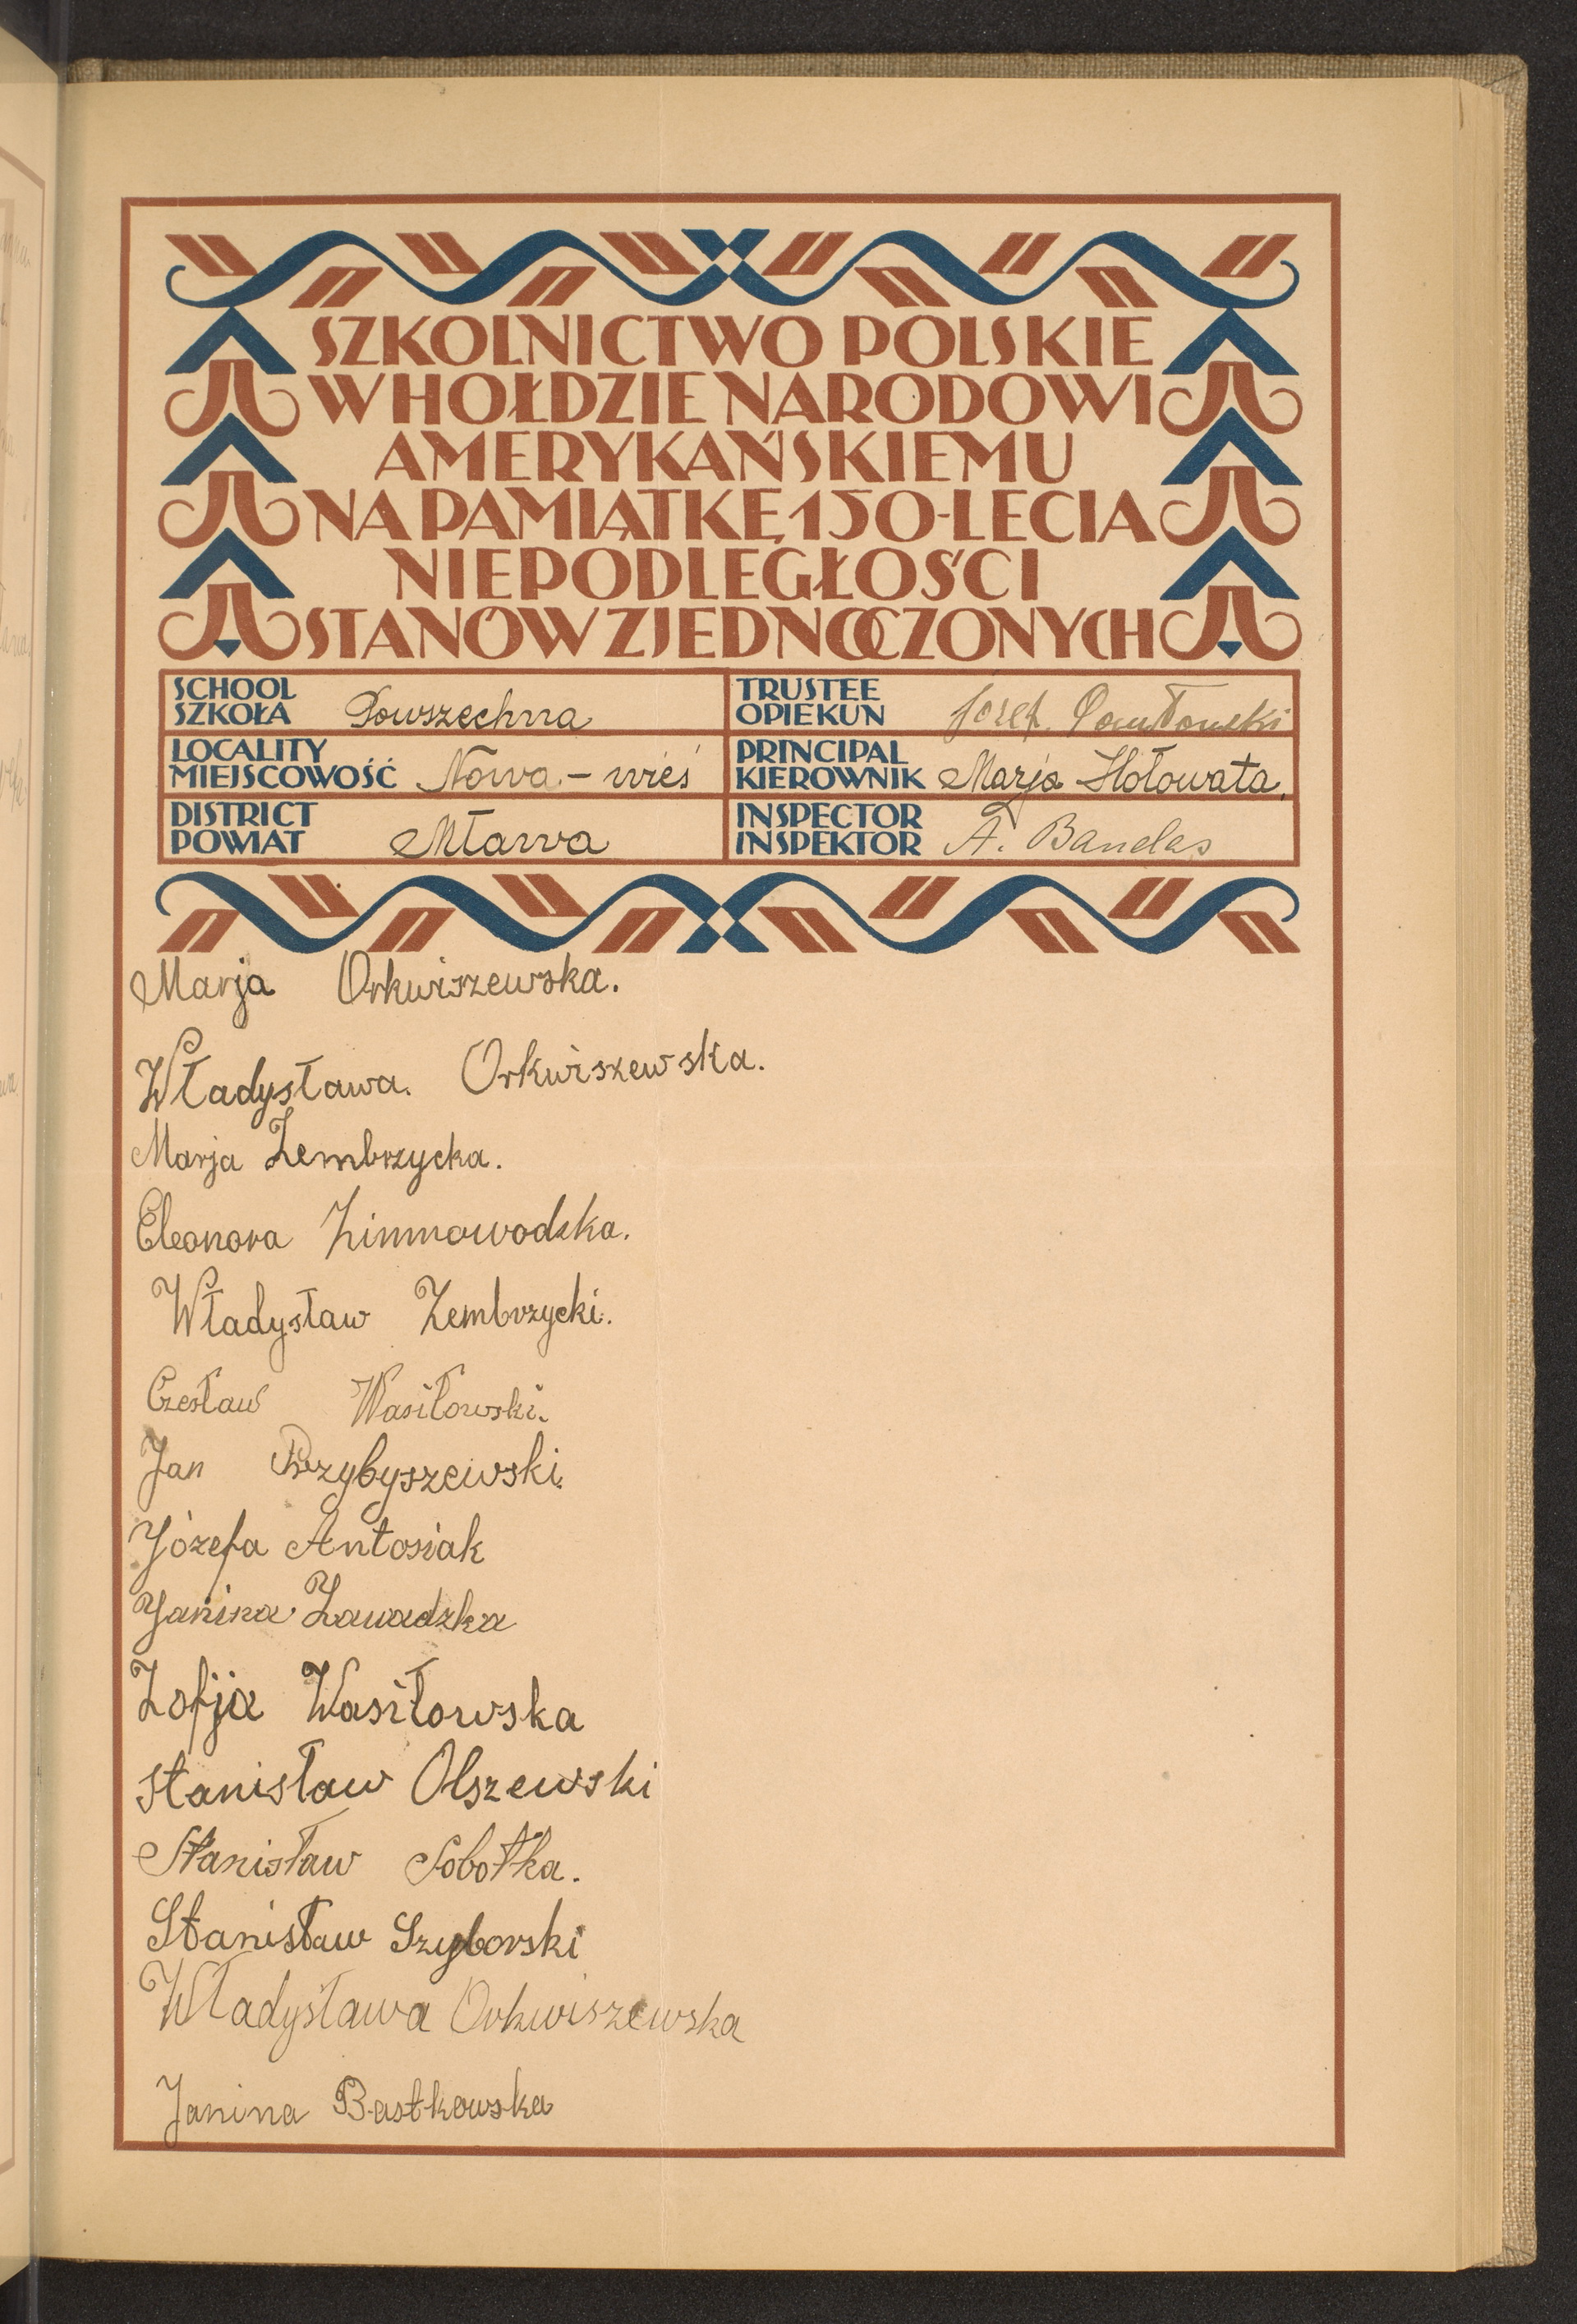 SZKOLNICTWO POLSKIE
W HOŁDZIE NARODOWI
AMERYKAŃSKIEMU
NA PAMIĄTKĘ 150-LECIA
NIEPODLEGŁOŚCI
STANÓW ZJEDNOCZONYCH
SCHOOL
SZKOŁA Powszechna
TRUSTEE
OPIEKUN Józef Pawłowski
LOCALITY
MIEJSCOWOŚĆ Nowa-wieś
PRINCIPAL
KIEROWNIK Marja Hołowata.
DISTRICT
POWIAT Mława
INSPECTOR
INSPEKTOR A. Bandas
Marja Orkwiszewska.
Władysława. Orkwiszewska.
Marja Zembrzycka.
Eleonora Zimnowodzka.
Władysław Zembrzycki.
Czesław Wasiłowski.
Jan Przybyszewski.
Józefa Antosiak
Janina Zawadzka
Zofja Wasiłowska
Stanisław Olszewski
Stanisław Sobotka.
Stanisław Szyborski
Władysława Orkwiszewska
Janina Bastkowska